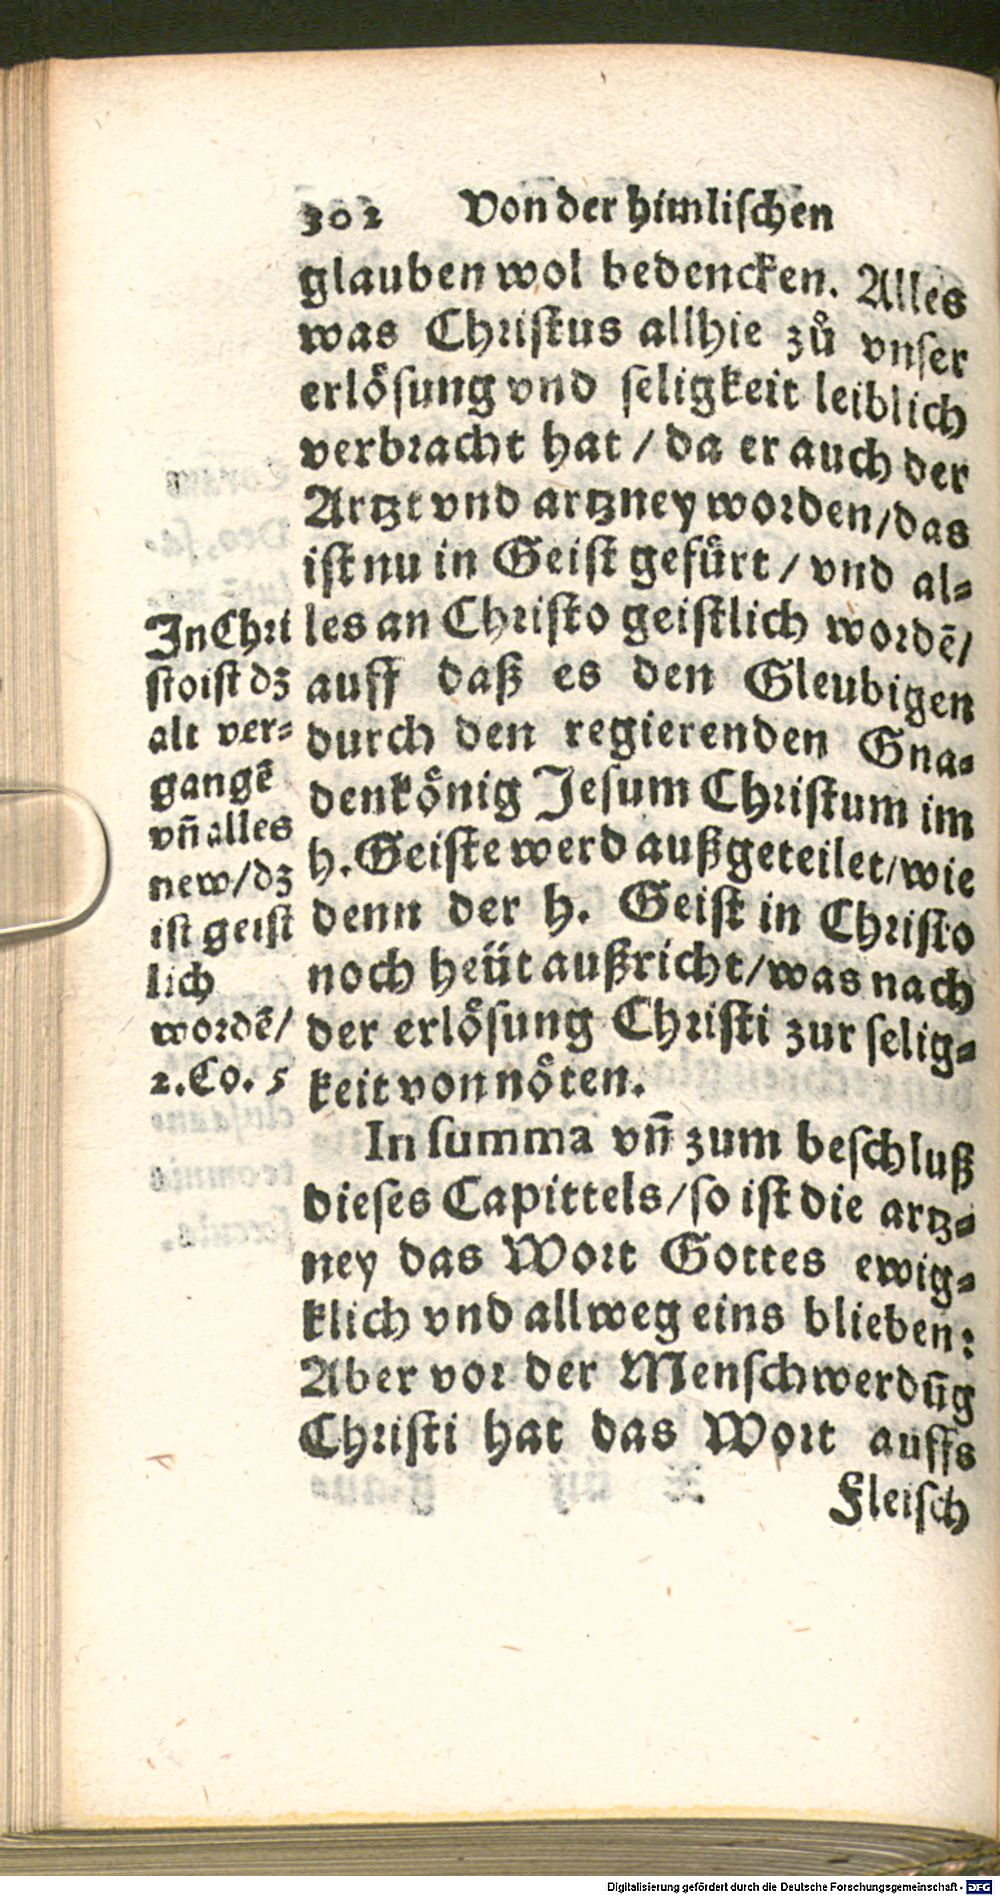 302 Von der himlischen
glauben wol bedencken. Alles
was Christus allhie zů vnser
erlösung vnd seligkeit leiblich
verbracht hat / da er auch der
Artzt vnd artzney worden/das
ist nu in Geist gefürt / vnd al-
les an Christo geistlich wordē/
auff daß es den Gleubigen
durch den regierenden Gna-
denkönig Jesum Christum im
h. Geiste werd außgeteilet/wie
denn der h. Geist in Christo
noch heüt außricht/was nach
der erlösung Christi zur selig-
keit von nöten.
In summa vn̄ zum beschluß
dieses Capittels/so ist die artz-
ney das Wort Gottes ewig-
klich vnd allweg eins blieben:
Aber vor der Menschwerdūg
Christi hat das Wort auffs
Fleisch
In Chri
sto ist dz
alt ver-
gangē
vn̄ alles
new/dz
ist geist
lich
wordē/
2. Co. 5
Digitalisierung gefördert durch die Deutsche Forschungsgemeinschaft - DFG